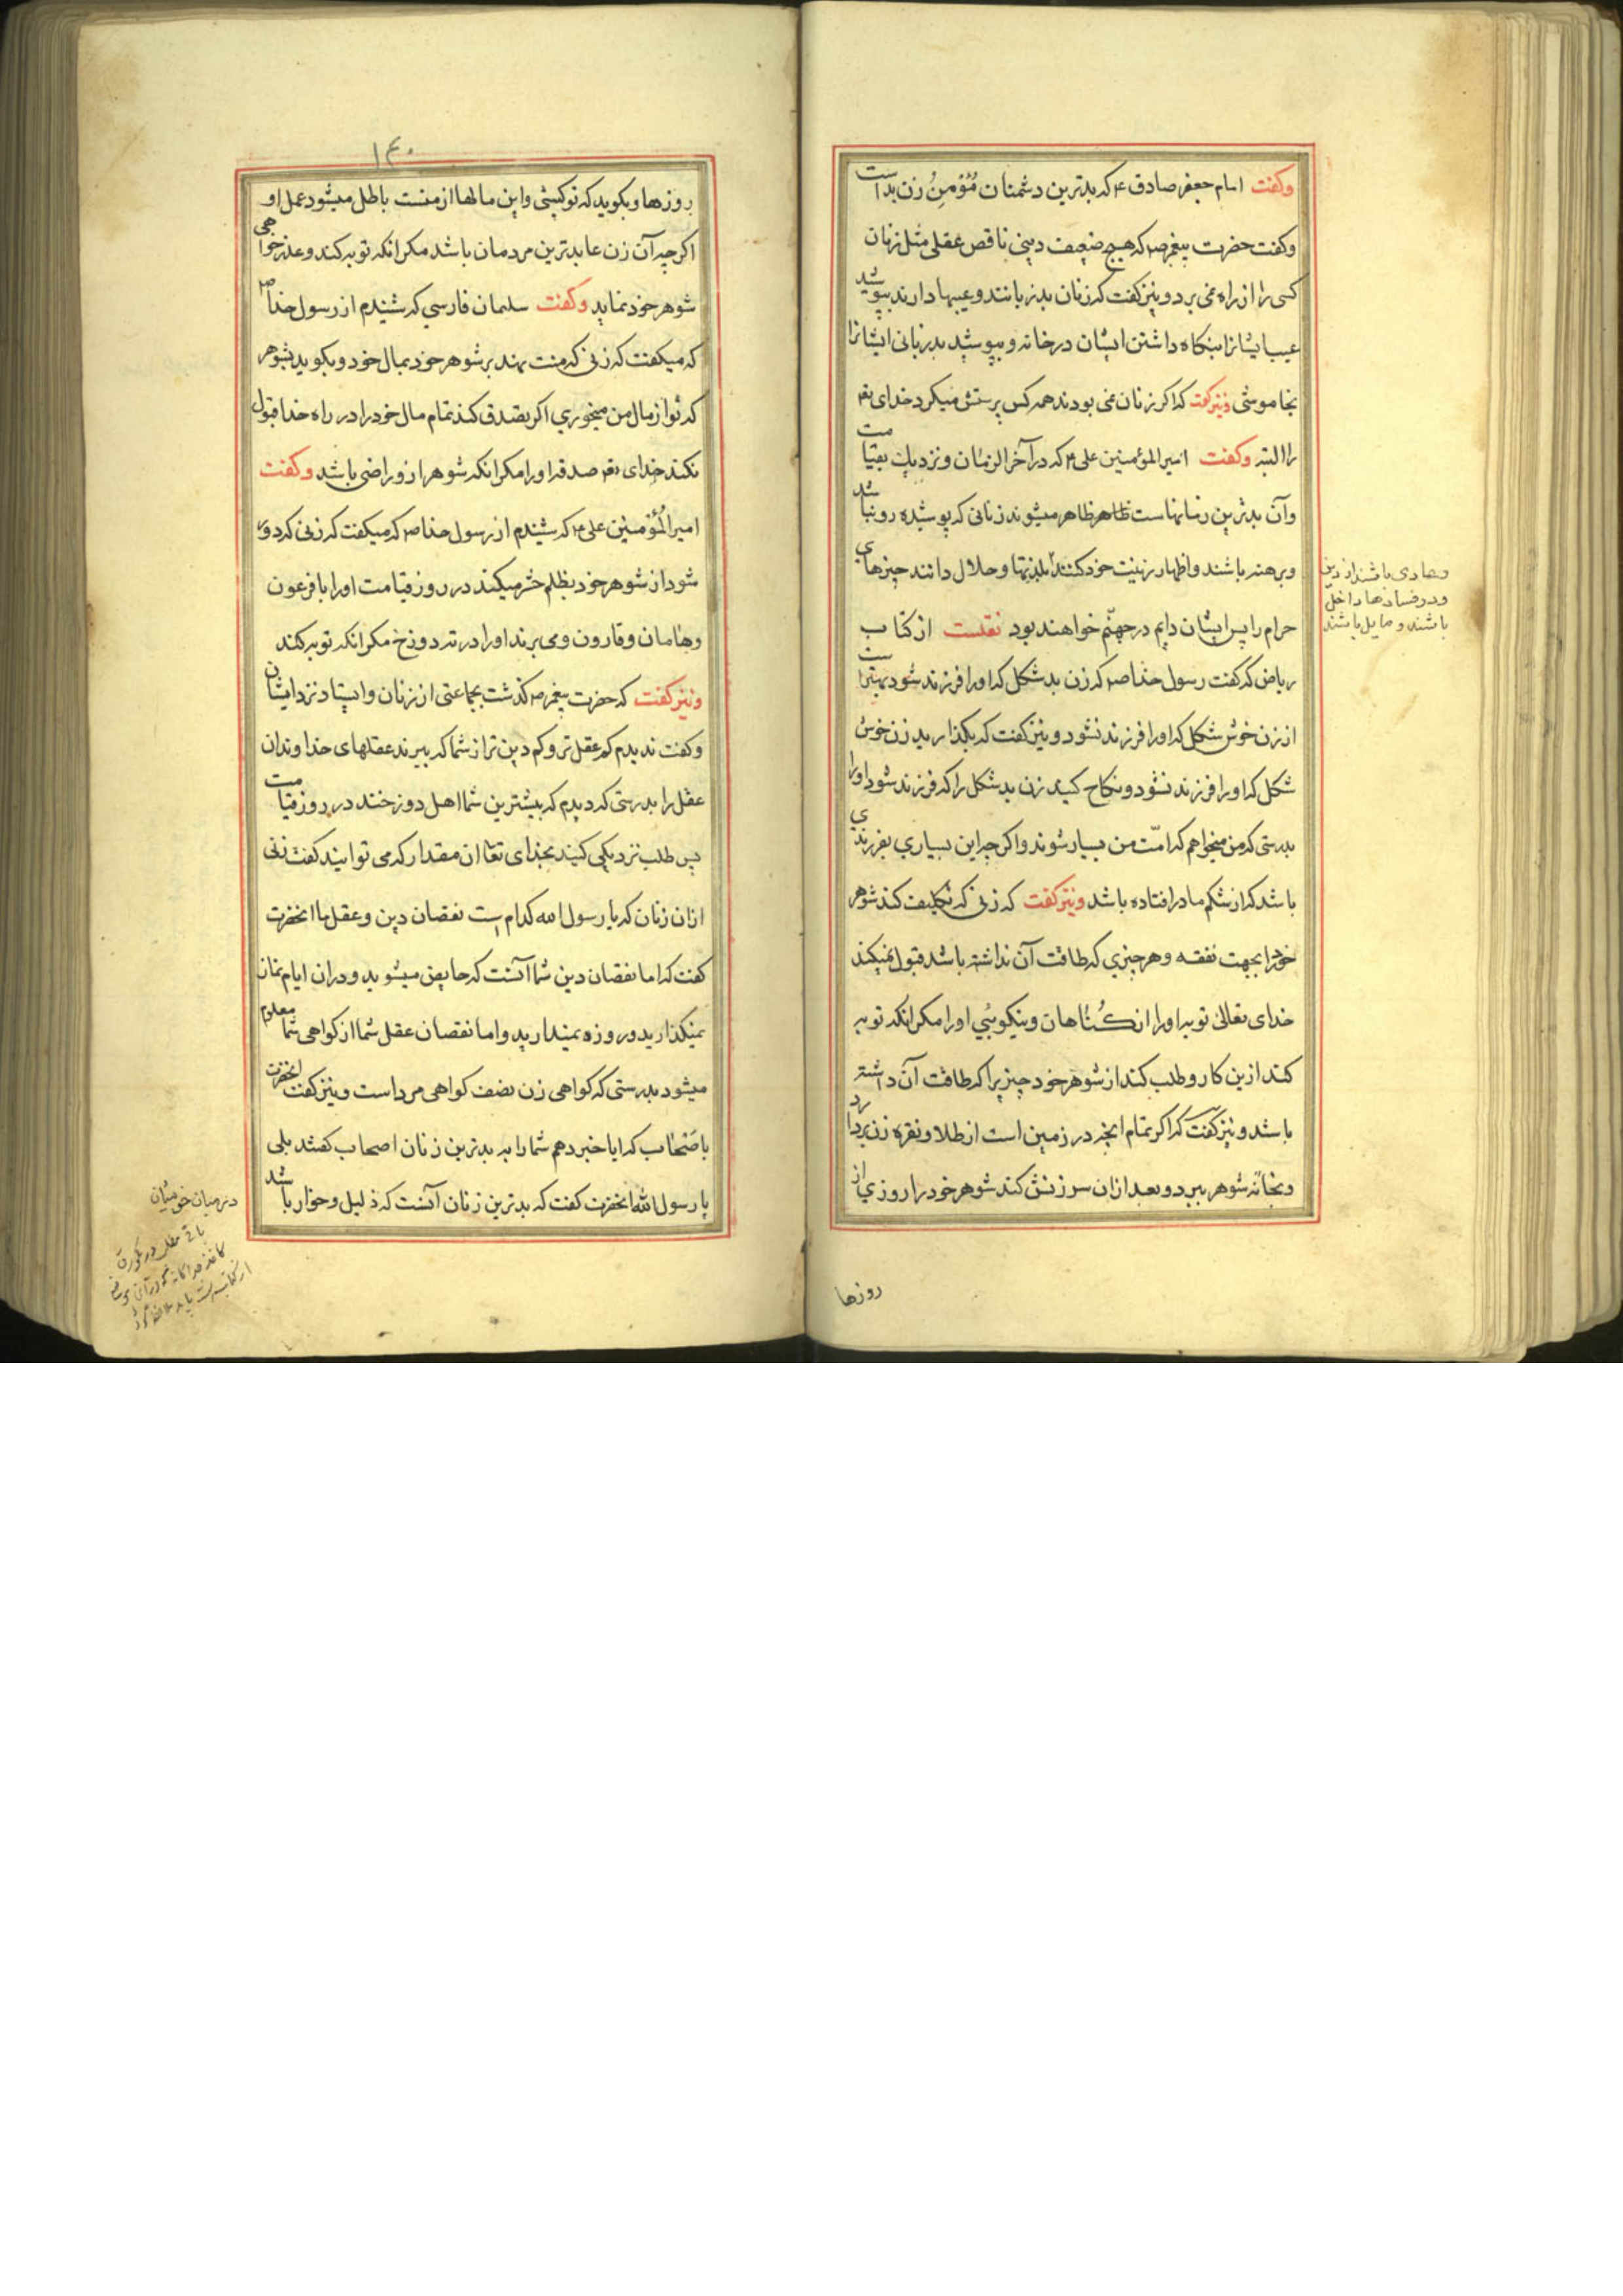 وکفت امام جعفر صادق ۴ که بدترین دشمنان مُؤمِنُ زن بد است
وکفت حضرت پیغمبر ص۴ که هیچ ضعیف دینی ناقص عقلی مثل زنان
کسی را از راه نمی برد و نیز کفت که زنان بد زبانند و عیبها دارند بپوشید
عیب ایشانرا بنکاه داشتن ایشان در خانه و بپوشید بد زبانی ایشانرا
بخاموشی ونیز کفت که اکر زنان نمی بودند همه کس پرستش میکرد خدای تع
را البته وکفت امیر المؤمنین علی ۴ که در آخر الزمان و نزدیک بقیامت
وآن بدترین زمانهاست ظاهر ظاهر میشوند زنانی که پوشیده رو نباشد
وبرهنه باشند و اظهار زینت خود کنند بلذتها و حلال دانند چیزهای
حرام را پس ایشان دایم در جهنّم خواهند بود نقلست از کتاب
ریاض که کفت رسول خدا ص۴ که زن بد شکل که او را فرزند شود بهتر است
از زن خوش شکل که او را فرزند نشود و نیز کفت که بکذارید زن خوش
شکل که او را فرزند نشود و نکاح کنید زن بد شکل را که فرزند شود او را
بدرستی که من میخواهم که امّت من بسیار شوند و اکرچه این بسیاری بفرزندی
باشد که از شکم مادر افتاده باشد ونیز کفت که زنی که تکلیف کند شوهر
خود را بجهت نفقه و هر چیزی که طاقت آن نداشته باشد قبول نمیکند
خدای تعالی توبه او را از کناهان و نیکویی او را مکر انکه توبه
کند ازین کار و طلب کند از شوهر خود چیزیرا که طاقت آن داشته
باشد و نیز کفت که اکر تمام انچه در زمین است از طلا و نقره زن بردارد
وبخانه شوهر ببرد و بعد ازان سرزنش کند شوهر خود را روزی از
روزها
وهادی باشند از دین
ودر فسادها داخل
باشند و مایل باشند
۱۴۰
روزها و بکوید که تو کیستی و این مالها از منست باطل میشود عمل او
اکرچه آن زن عابدترین مردمان باشد مکر انکه توبه کند و عذر خواهی
شوهر خود نماید وکفت سلمان فارسی که شنیدم از رسول خدا ص۴
که میکفت که زنی که منت نهد بر شوهر خود بمال خود و بکوید بشوهر
که تو از مال من میخوری اکر تصدق کند تمام مال خود را در راه خدا قبول
نکند خدای تع صدقه او را مکر انکه شوهر از و راضی باشد وکفت
امیر المُؤمنین علی ۴ که شنیدم از رسول خدا ص۴ که میکفت که زنی که دور
شود از شوهر خود بظلم حشر میکند در روز قیامت او را با فرعون
وهامان و قارون و می برند او را در ته دوزخ مکر انکه توبه کند
ونیز کفت که حضرت پیغمبر ص۴ کذشت بجماعتی از زنان و ایستاد نزد ایشان
وکفت ندیدم کم عقل تر و کم دین تر از شما که ببرند عقلهای خداوندان
عقل را بدرستی که دیدم که بیشترین شما اهل دوزخند در روز قیامت
پس طلب نزدیکی کنید بخدای تعا ان مقدار که می توانید کفت زنی
ازان زنان که یا رسول الله کدام است نقصان دین و عقل ما انحضرت
کفت که اما نقصان دین شما آنست که حایض میشوید و دران ایام نماز
نمیکذارید و روزه نمیدارید و اما نقصان عقل شما از کواهی شما معلوم
میشود بدرستی که کواهی زن نصف کواهی مرد است و نیز کفت انحضرت
باصحاب که ایا خبر دهم شما را به بدترین زنان اصحاب کفتند بلی
یا رسول الله انحضرت کفت که بدترین زنان آنست که ذلیل و خوار باشد
در میان خویشان